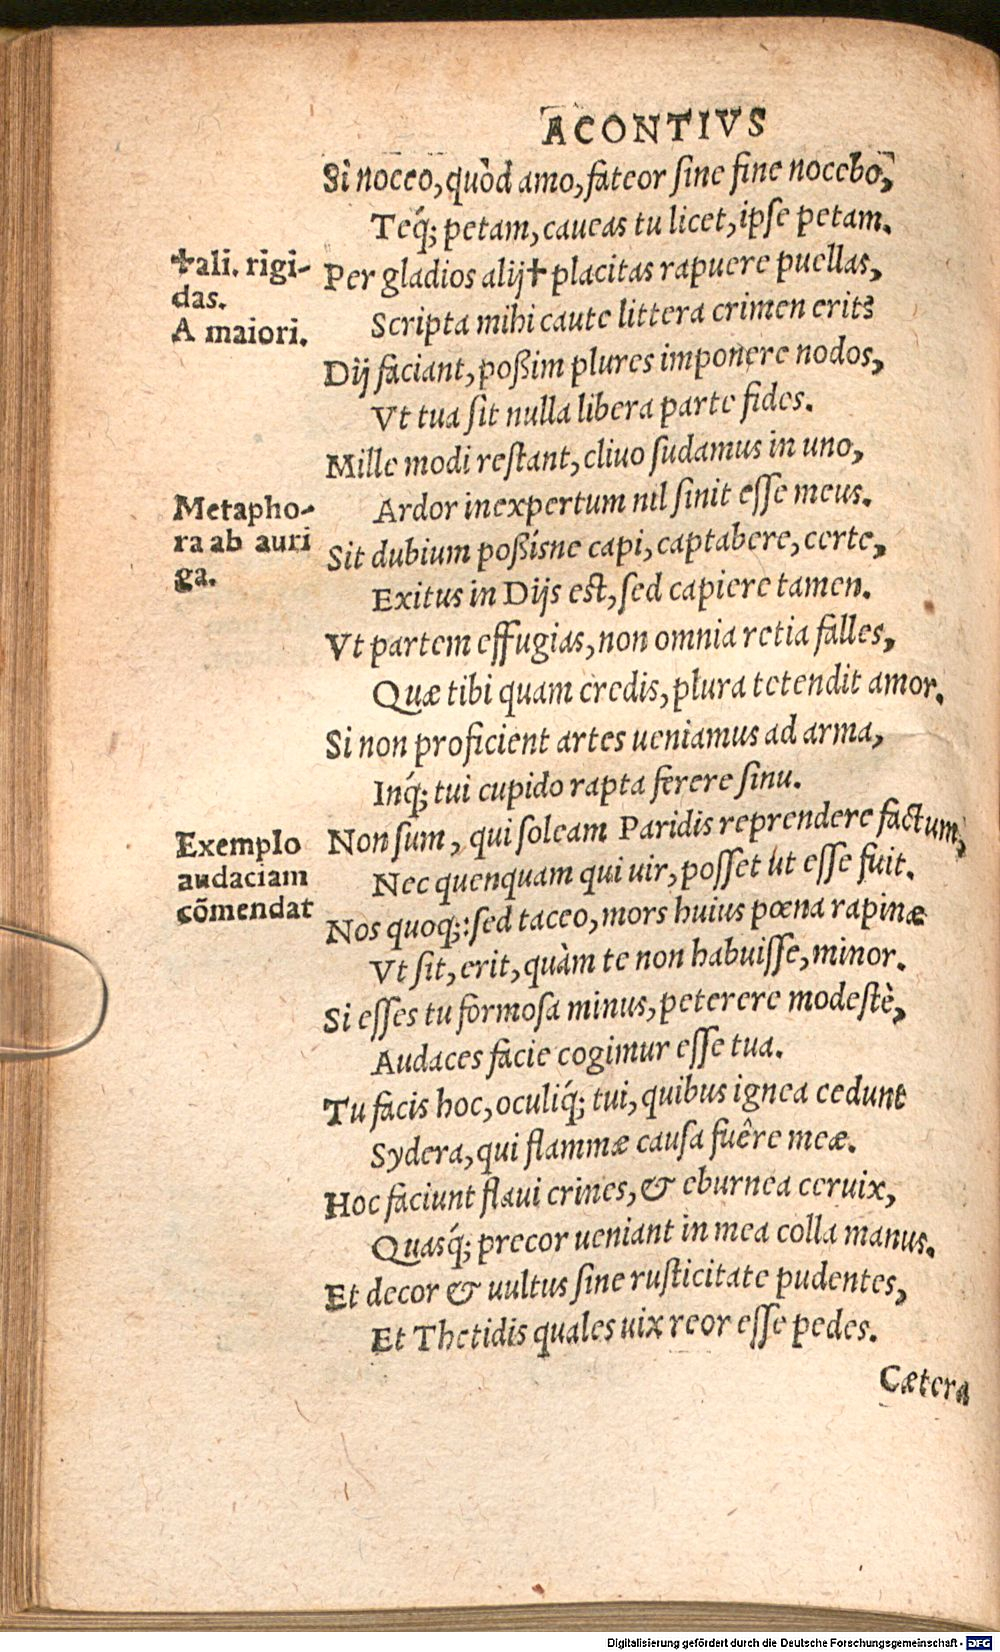 ACONTIVS
Si noceo, quòd amo, fateor sine fine nocebo,
Teq́; petam, caueas tu licet, ipse petam.
✝ali. rigi-
das.
Per gladios alij✝ placitas rapuere puellas,
Scripta mihi caute littera crimen erit?
A maiori.
Dij faciant, poßim plures imponere nodos,
Vt tua sit nulla libera parte fides.
Mille modi restant, cliuo sudamus in uno,
Ardor inexpertum nil sinit esse meus.
Metapho-
ra ab auri
ga.
Sit dubium poßísne capi, captabere, certe,
Exitus in Dijs est, sed capiere tamen.
Vt partem effugias, non omnia retia falles,
Quæ tibi quam credis, plura tetendit amor.
Si non proficient artes ueniamus ad arma,
Inq́; tui cupido rapta ferere sinu.
Exemplo
audaciam
cõmendat
Non sum, qui soleam Paridis reprendere factum,
Nec quenquam qui uir, posset ut esse fuit.
Nos quoq;: sed taceo, mors huius pœna rapinæ
Vt sit, erit, quàm te non habuisse, minor.
Si esses tu formosa minus, peterere modestè,
Audaces facie cogimur esse tua.
Tu facis hoc, oculiq́; tui, quibus ignea cedunt
Sydera, qui flammæ causa fuêre meæ.
Hoc faciunt flaui crines, & eburnea ceruix,
Quasq́; precor ueniant in mea colla manus.
Et decor & uultus sine rusticitate pudentes,
Et Thetidis quales uix reor esse pedes.
Cætera
Digitalisierung gefördert durch die Deutsche Forschungsgemeinschaft - DFG